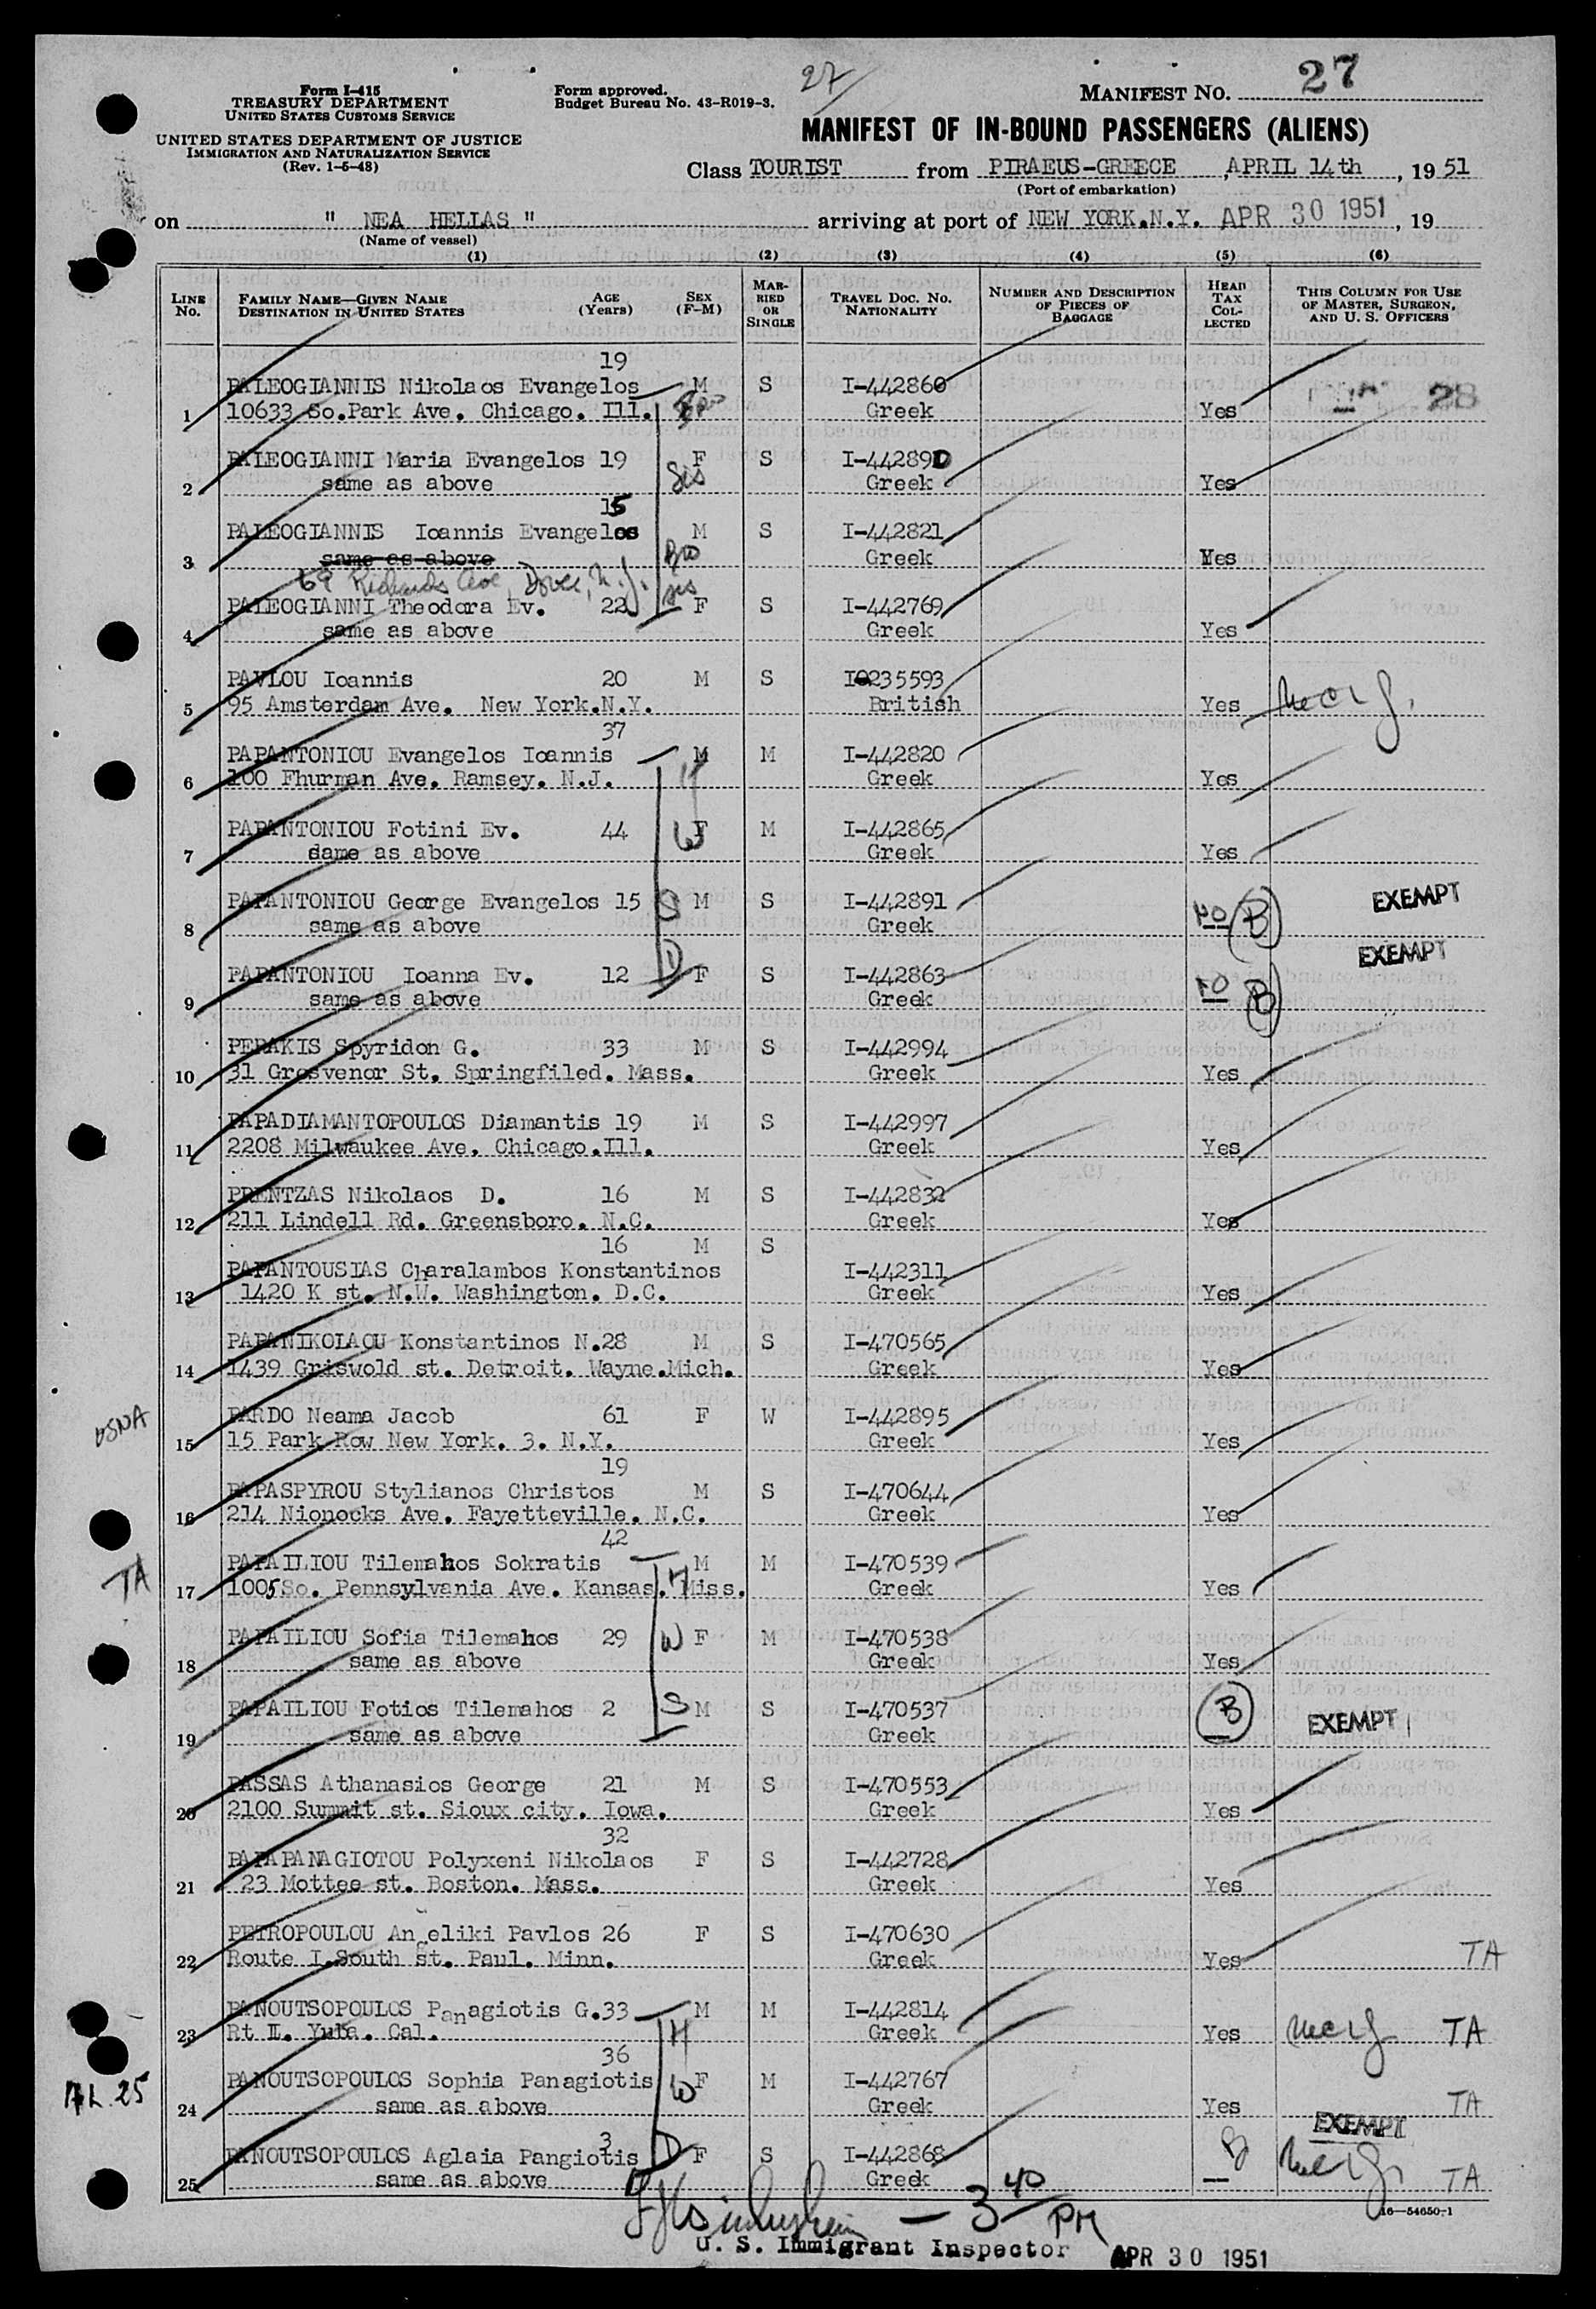 Form I-415
TREASURY DEPARTMENT
UNITED STATES CUSTOMS SERVICE
UNITED STATES DEPARTMENT OF JUSTICE
IMMIGRATION AND NATURALIZATION SERVICE
(Rev. 1-5-48)
Form approved.
Budget Bureau No. 43-R019-3.
27
MANIFEST NO. 27
MANIFEST OF IN-BOUND PASSENGERS (ALIENS)
Class TOURIST from PIRAEUS-GREECE, APRIL 14th, 1951
(Port of embarkation)
on " NEA HELLAS " arriving at port of NEW YORK.N.Y. APR 30 1951, 19
(Name of vessel)
(1) (2) (3) (4) (5) (6)
LINE NO. FAMILY NAME—GIVEN NAME DESTINATION IN UNITED STATES AGE (Years) SEX (F-M) MARRIED OR SINGLE TRAVEL DOC. NO. NATIONALITY NUMBER AND DESCRIPTION OF PIECES OF BAGGAGE HEAD TAX COLLECTED THIS COLUMN FOR USE OF MASTER, SURGEON, AND U. S. OFFICERS
19
PALEOGIANNIS Nikolaos Evangelos M S I-442860
1 10633 So.Park Ave. Chicago. Ill. Bro Greek Yes 28
PALEOGIANNI Maria Evangelos 19 F S I-442890
2 same as above Sis Greek Yes
15
PALEOGIANNIS Ioannis Evangelos M S I-442821
3 same as above Bro Greek Yes
69 Richards Ave, Dover, N.J. sis
PALEOGIANNI Theodora Ev. 22 F S I-442769
4 same as above Greek Yes
PAVLOU Ioannis 20 M S I0235593
5 95 Amsterdam Ave. New York.N.Y. British Yes
37
PAPANTONIOU Evangelos Ioannis M M I-442820
6 100 Fhurman Ave. Ramsey. N.J. H Greek Yes
PAPANTONIOU Fotini Ev. 44 W F M I-442865
7 dame as above Greek Yes
PAPANTONIOU George Evangelos 15 S M S I-442891 EXEMPT
8 same as above Greek no B
EXEMPT
PAPANTONIOU Ioanna Ev. 12 D F S I-442863
9 same as above Greek no B
PERAKIS Spyridon G. 33 M S I-442994
10 31 Grosvenor St. Springfiled. Mass. Greek Yes
PAPADIAMANTOPOULOS Diamantis 19 M S I-442997
11 2208 Milwaukee Ave. Chicago.Ill. Greek Yes
PRENTZAS Nikolaos D. 16 M S I-442832
12 211 Lindell Rd. Greensboro. N.C. Greek Yes
16 M S
PAPANTOUSIAS Charalambos Konstantinos I-442311
13 1420 K st. N.W. Washington. D.C. Greek Yes
PAPANIKOLAOU Konstantinos N.28 M S I-470565
14 1439 Griswold st. Detroit. Wayne.Mich. Greek Yes
USNA
PARDO Neama Jacob 61 F W I-442895
15 15 Park Row New York. 3. N.Y. Greek Yes
19
PAPASPYROU Stylianos Christos M S I-470644
16 214 Nionocks Ave. Fayetteville. N.C. Greek Yes
42
PAPAILIOU Tilemahos Sokratis M M I-470539
TA 17 1005 So. Pennsylvania Ave. Kansas. Miss. H Greek Yes
PAPAILIOU Sofia Tilemahos 29 W F M I-470538
18 same as above Greek Yes
PAPAILIOU Fotios Tilemahos 2 S M S I-470537
19 same as above Greek B EXEMPT
PASSAS Athanasios George 21 M S I-470553
20 2100 Summit st. Sioux city. Iowa. Greek Yes
32
PAPAPANAGIOTOU Polyxeni Nikolaos F S I-442728
21 23 Mottee st. Boston. Mass. Greek Yes
PETROPOULOU Angeliki Pavlos 26 F S I-470630
22 Route I.South St. Paul. Minn. Greek Yes TA
PANOUTSOPOULOS Panagiotis G.33 M M I-442814
23 Rt II. Yuba. Cal. H Greek Yes TA
36
PANOUTSOPOULOS Sophia Panagiotis W F M I-442767
AL 25 24 same as above Greek Yes TA
3 EXEMPT
PANOUTSOPOULOS Aglaia Pangiotis D F S I-442868 B
25 same as above Greek TA
16—54650-1
— 3 40 PM
U. S. Immigrant Inspector APR 30 1951